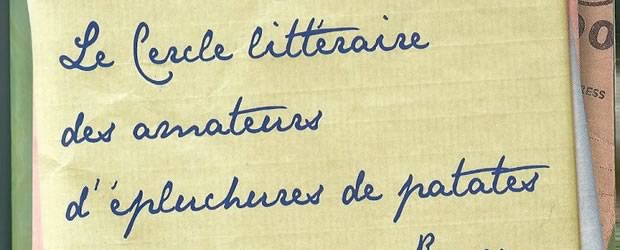 Le Cercle littéraire
des amateurs
d'épluchures de patates
RESS